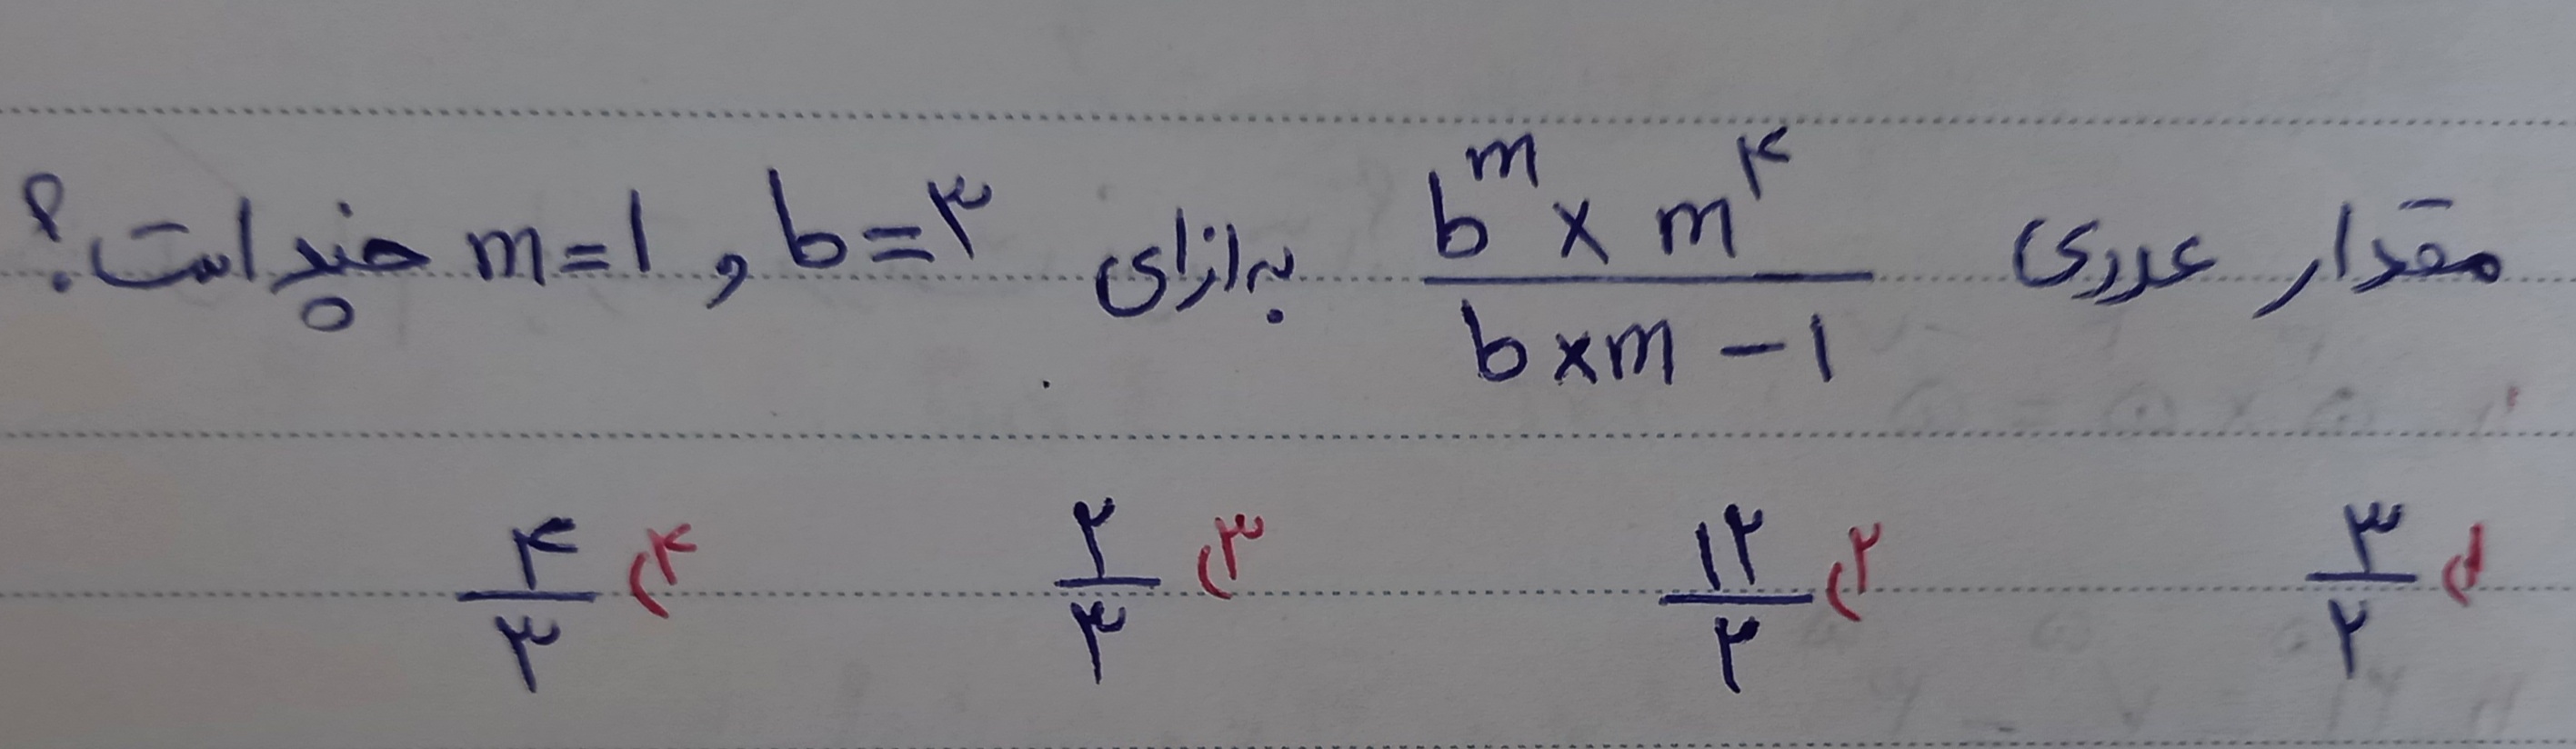 مقدار عددی (b^m × m^۴)/(b×m − ۱) به ازای b=۳ و m=۱ چند است؟
۱) ۳/۲ ۲) ۱۲/۳ ۳) ۲/۳ ۴) ۴/۳